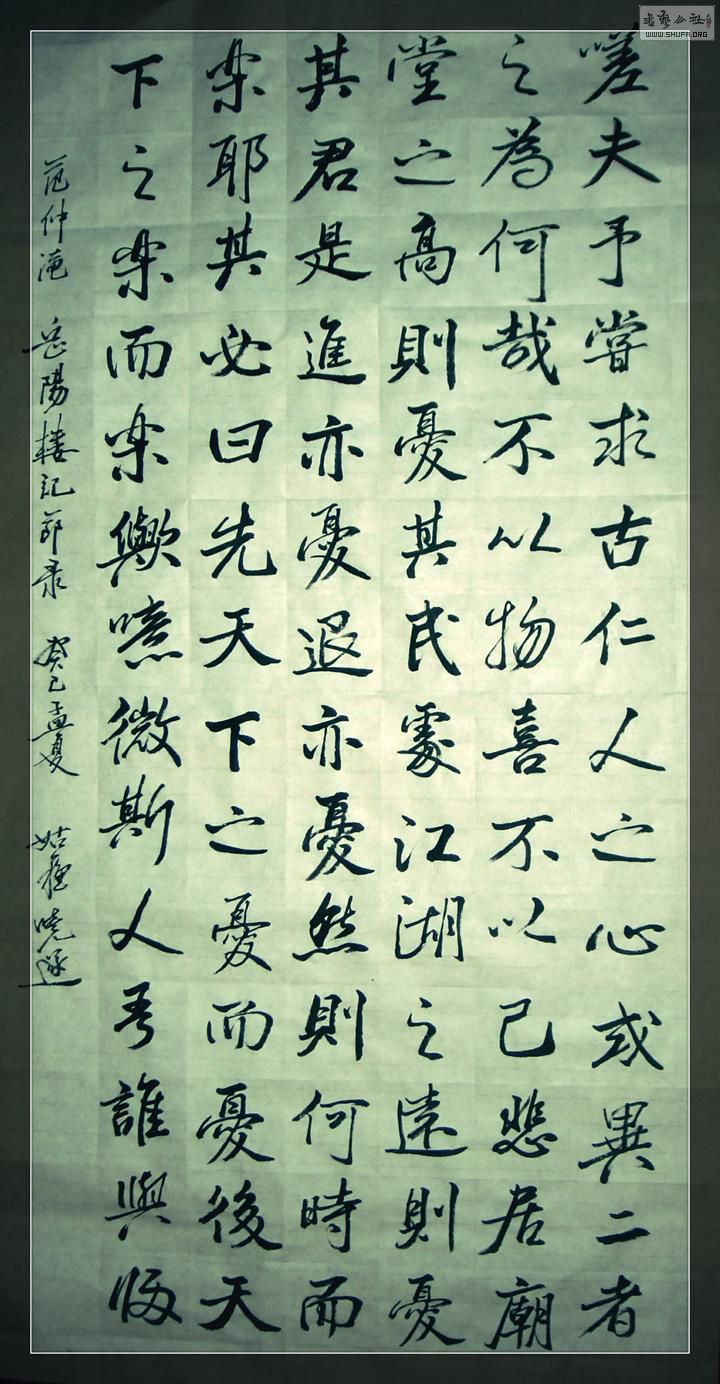 嗟夫予嘗求古仁人之心或異二者
之為何哉不以物喜不以己悲居廟
堂之高則憂其民處江湖之遠則憂
其君是進亦憂退亦憂然則何時而
楽耶其必曰先天下之憂而憂後天
下之楽而楽歟噫微斯人吾誰與歸
范仲淹 岳陽樓記節录 癸巳孟夏
書藝公社
WWW.SHUFA.ORG